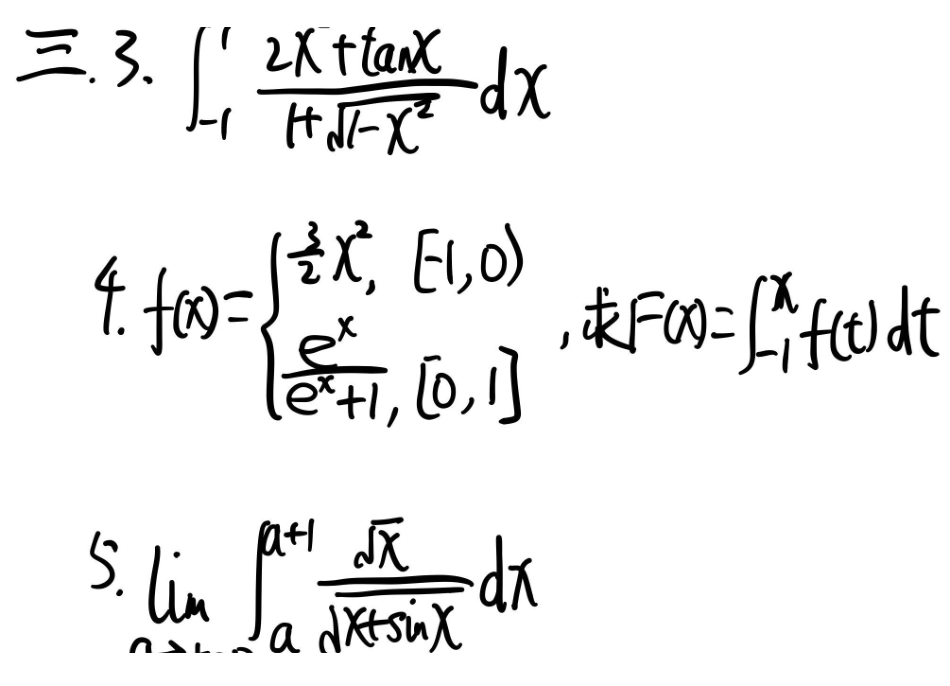 三.3. ∫_{-1}^{1} \frac{2x+tanx}{1+\sqrt{1-x^2}} dx
4. f(x)= { \frac{3}{2}x^2, [-1,0) ; \frac{e^x}{e^x+1}, [0,1] , 求F(x)=∫_{-1}^{x} f(t)dt
5. lim ∫_{a}^{a+1} \frac{\sqrt{x}}{\sqrt{x+sinx}} dx